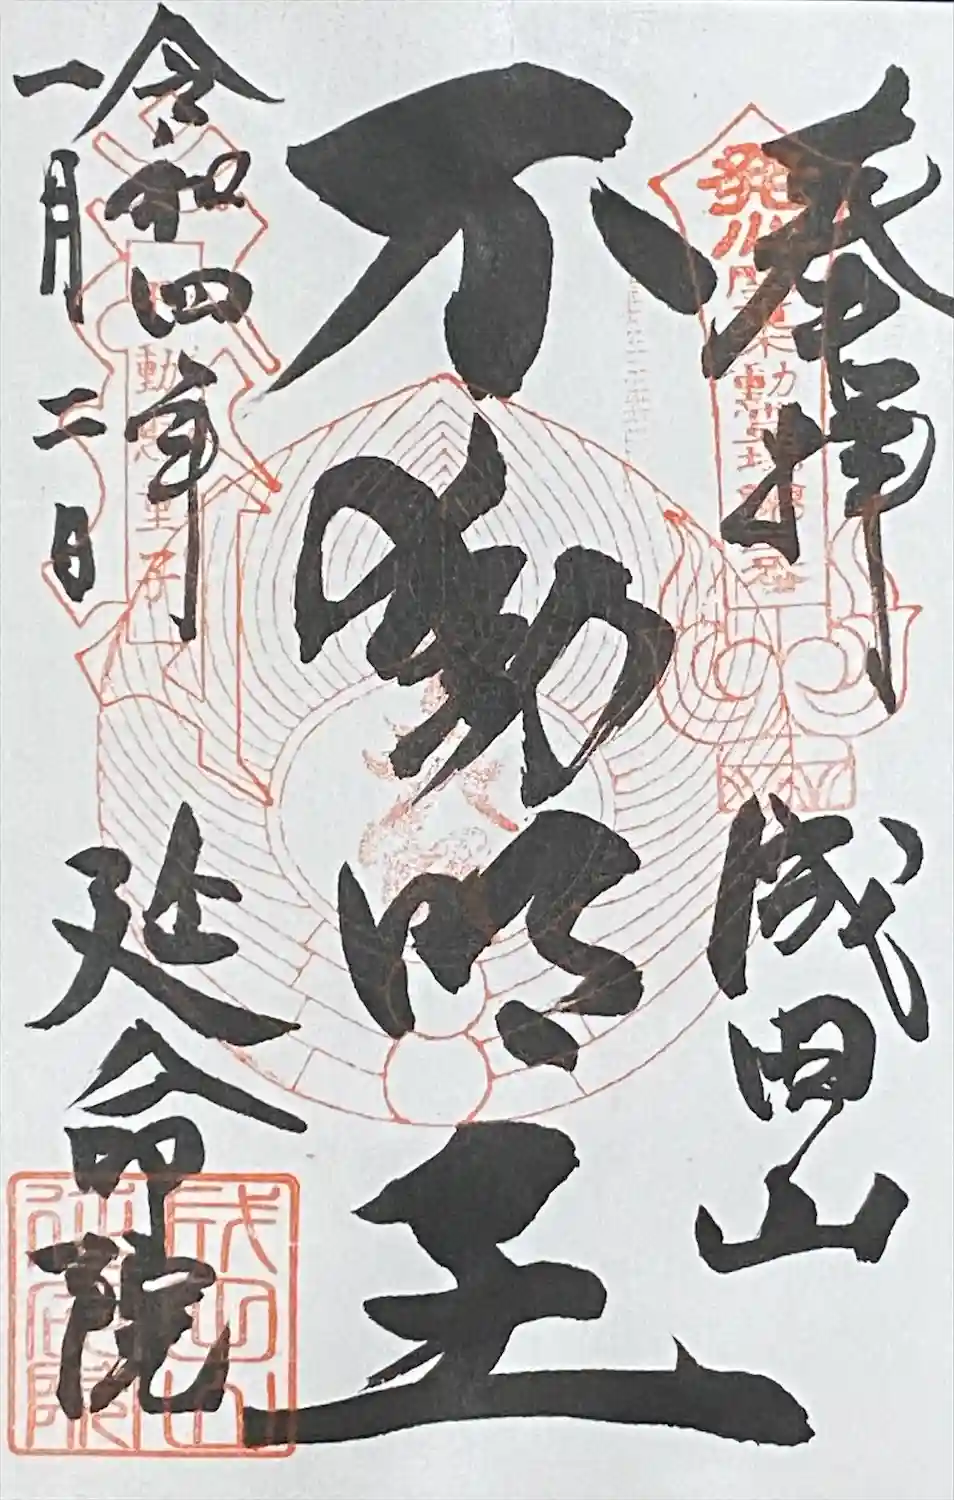 奉拝 成田山
不動明王
令和四年
一月二日
延命院
成田山
延命院